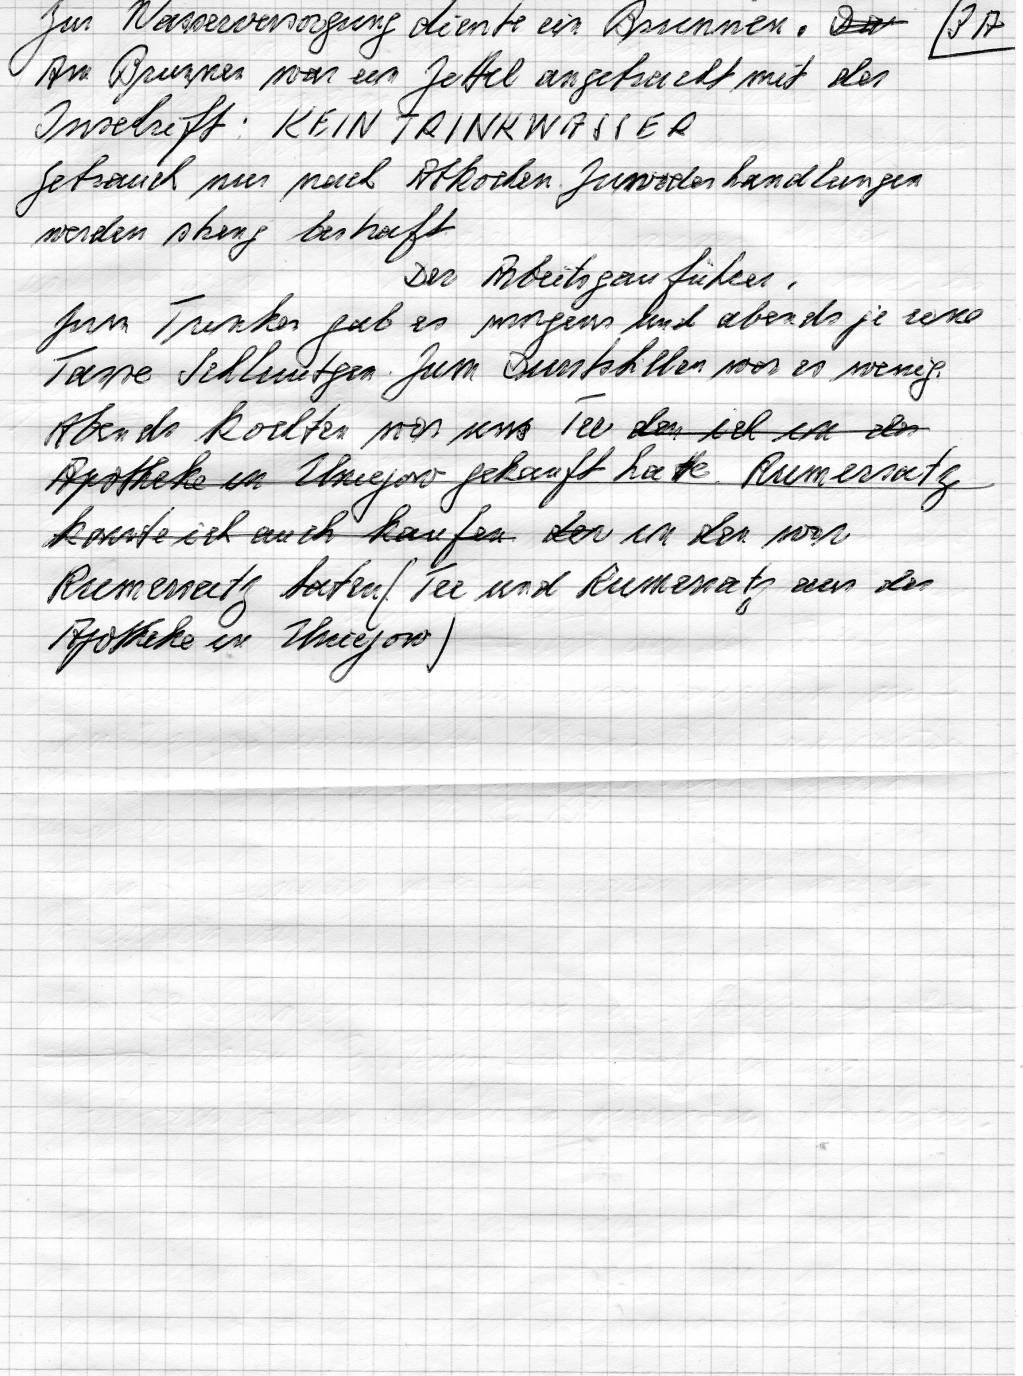 Zur Wasserversorgung diente ein Brunnen. Der 3A
Am Brunnen war ein Zettel angebracht mit der
Inschrift: KEIN TRINKWASSER
Gebrauch nur nach Abkochen Zuwiderhandlungen
werden streng bestraft
Der Arbeitsgauführer.
Zum Trinken gab es morgens und abends je eine
Tasse Zum Durststillen war es wenig.
Abends kochten wir uns Tee den ich in der
Apotheke in Uniejow gekauft hatte. Rumersatz
konnte ich auch kaufen den in den wir
Rumersatz taten (Tee und Rumersatz aus der
Apotheke in Uniejow)